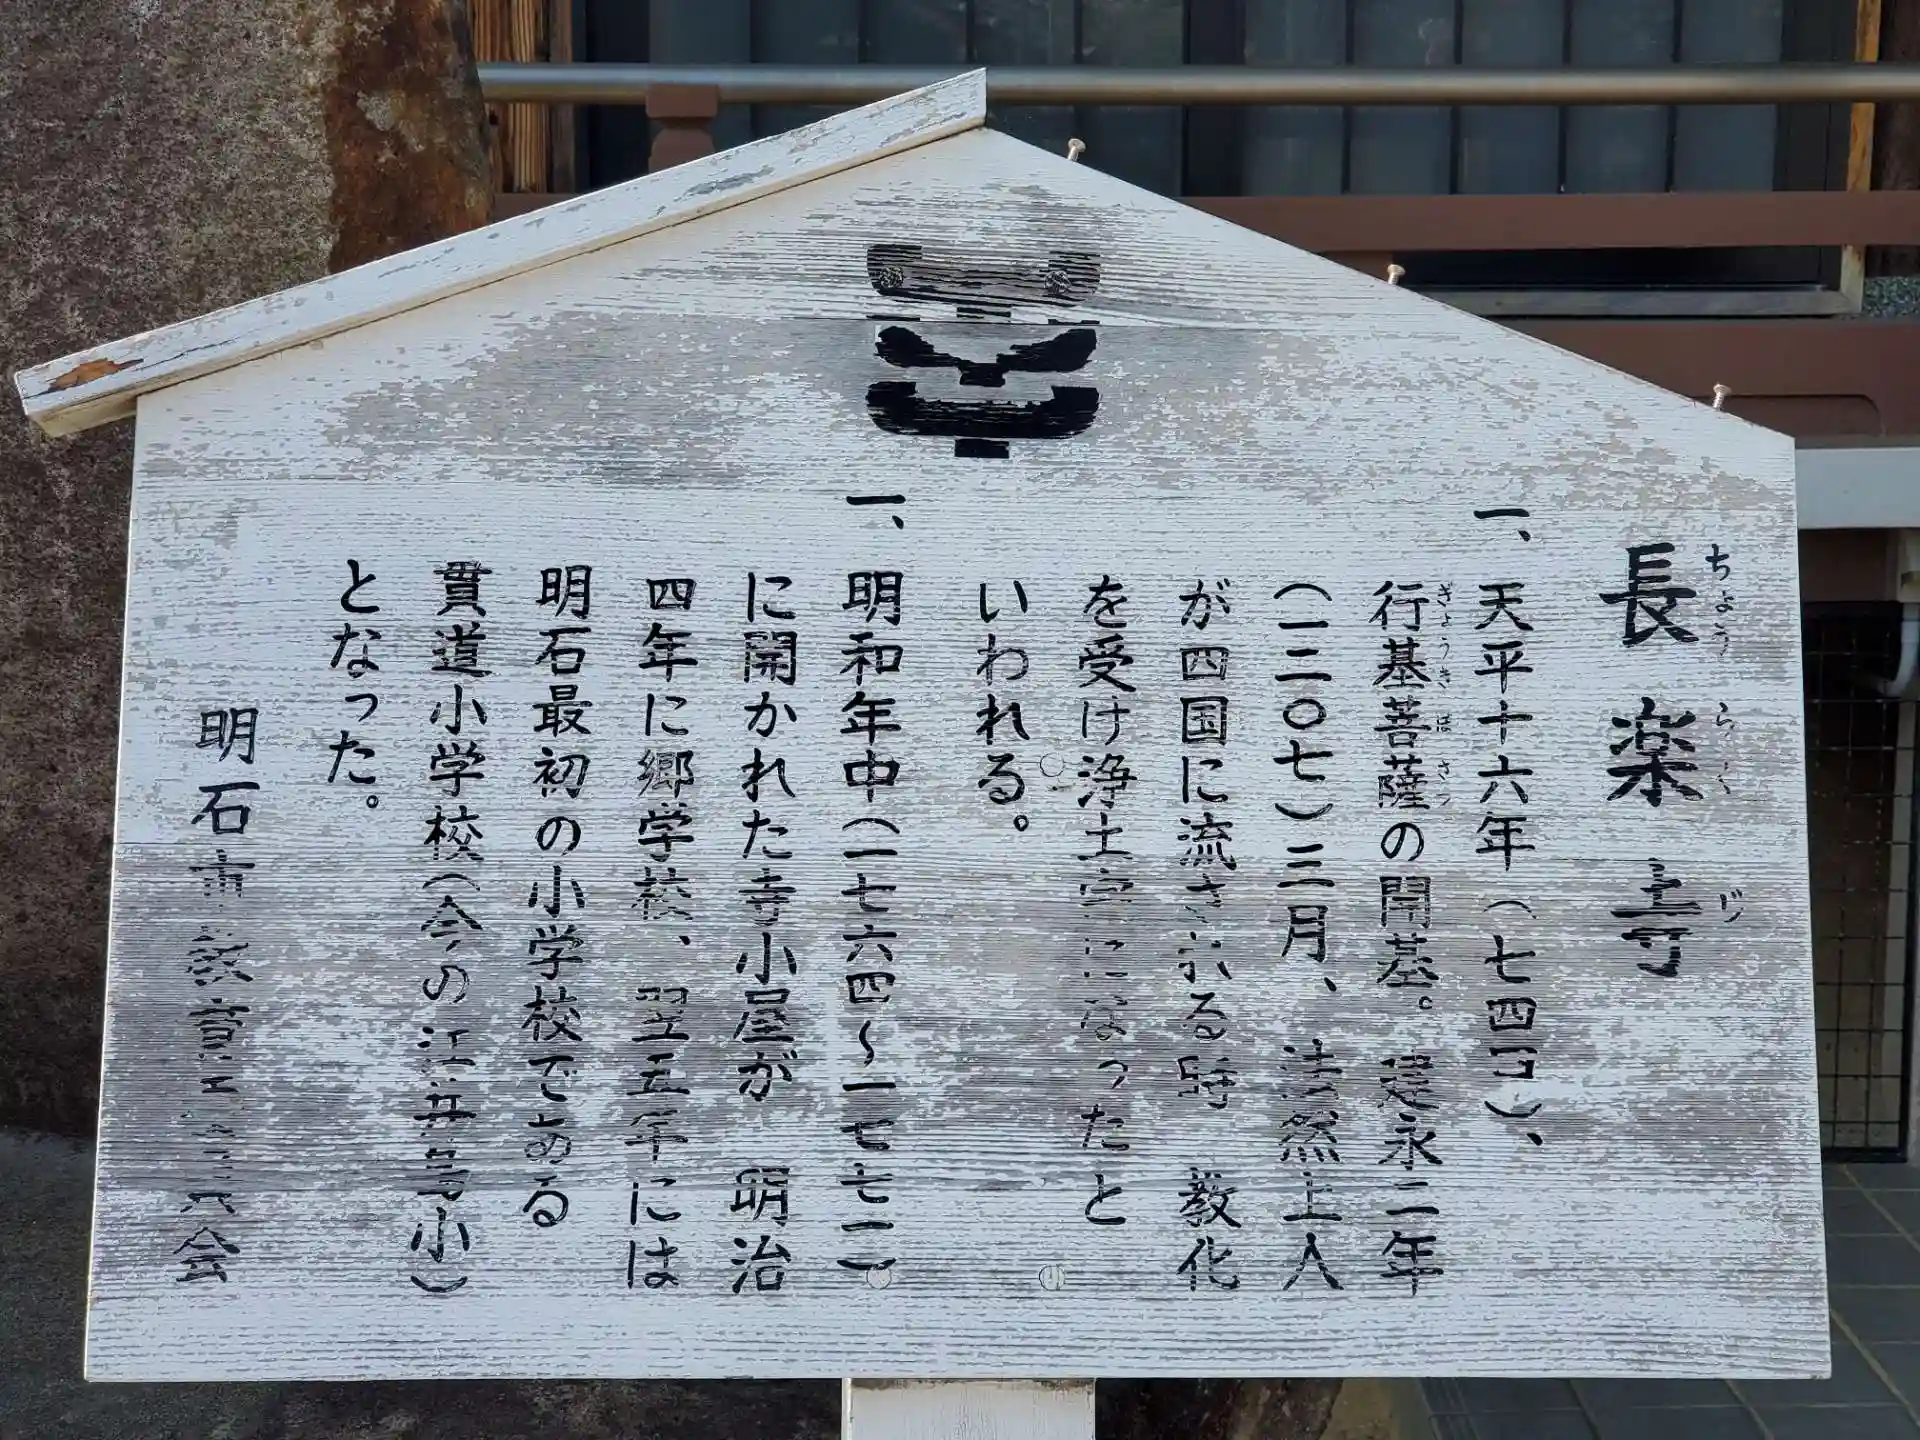 長楽寺
ちょうらくじ
一、天平十六年(七四四)、
行基菩薩の開基。建永二年
ぎょうきぼさつ
(一二〇七)三月、法然上人
が四国に流される時 教化
を受け浄土宗になったと
いわれる。
一、明和年中(一七六四〜一七七一)
に開かれた寺小屋が 明治
四年に郷学校、翌五年には
明石最初の小学校である
貫道小学校(今の江井島小)
となった。
明石市教育委員会